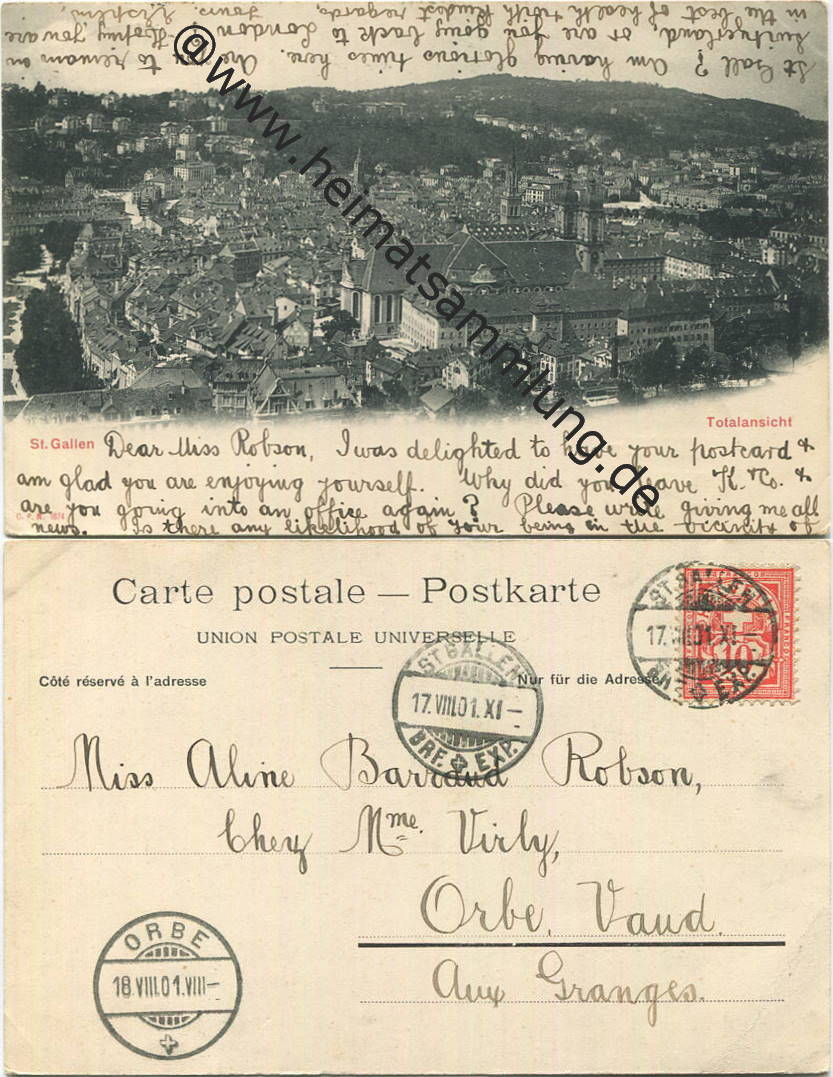 St. Gallen
Totalansicht
Dear Miss Robson, I was delighted to have your postcard &
am glad you are enjoying yourself. Why did you leave K. & Co. &
are you going into an office again? Please write giving me all
news. Is there any likelihood of your being in the vicinity of
St Gall? Am having glorious times here. Are you to remain in
Switzerland, or are you going back to London? Hoping you are
in the best of health with kindest regards,
Yours,
@www.heimatsammlung.de
Carte postale — Postkarte
UNION POSTALE UNIVERSELLE
Côté réservé à l'adresse
Nur für die Adresse
ST. GALLEN
17.VIII.01.XI–
BRF. EXP.
ST. GALLEN
17.VIII.01.XI–
BRF. EXP.
10
Miss Aline Barraud Robson,
Chez Mme. Virly,
Orbe, Vaud.
Aux Granges.
ORBE
18.VIII.01.VIII–